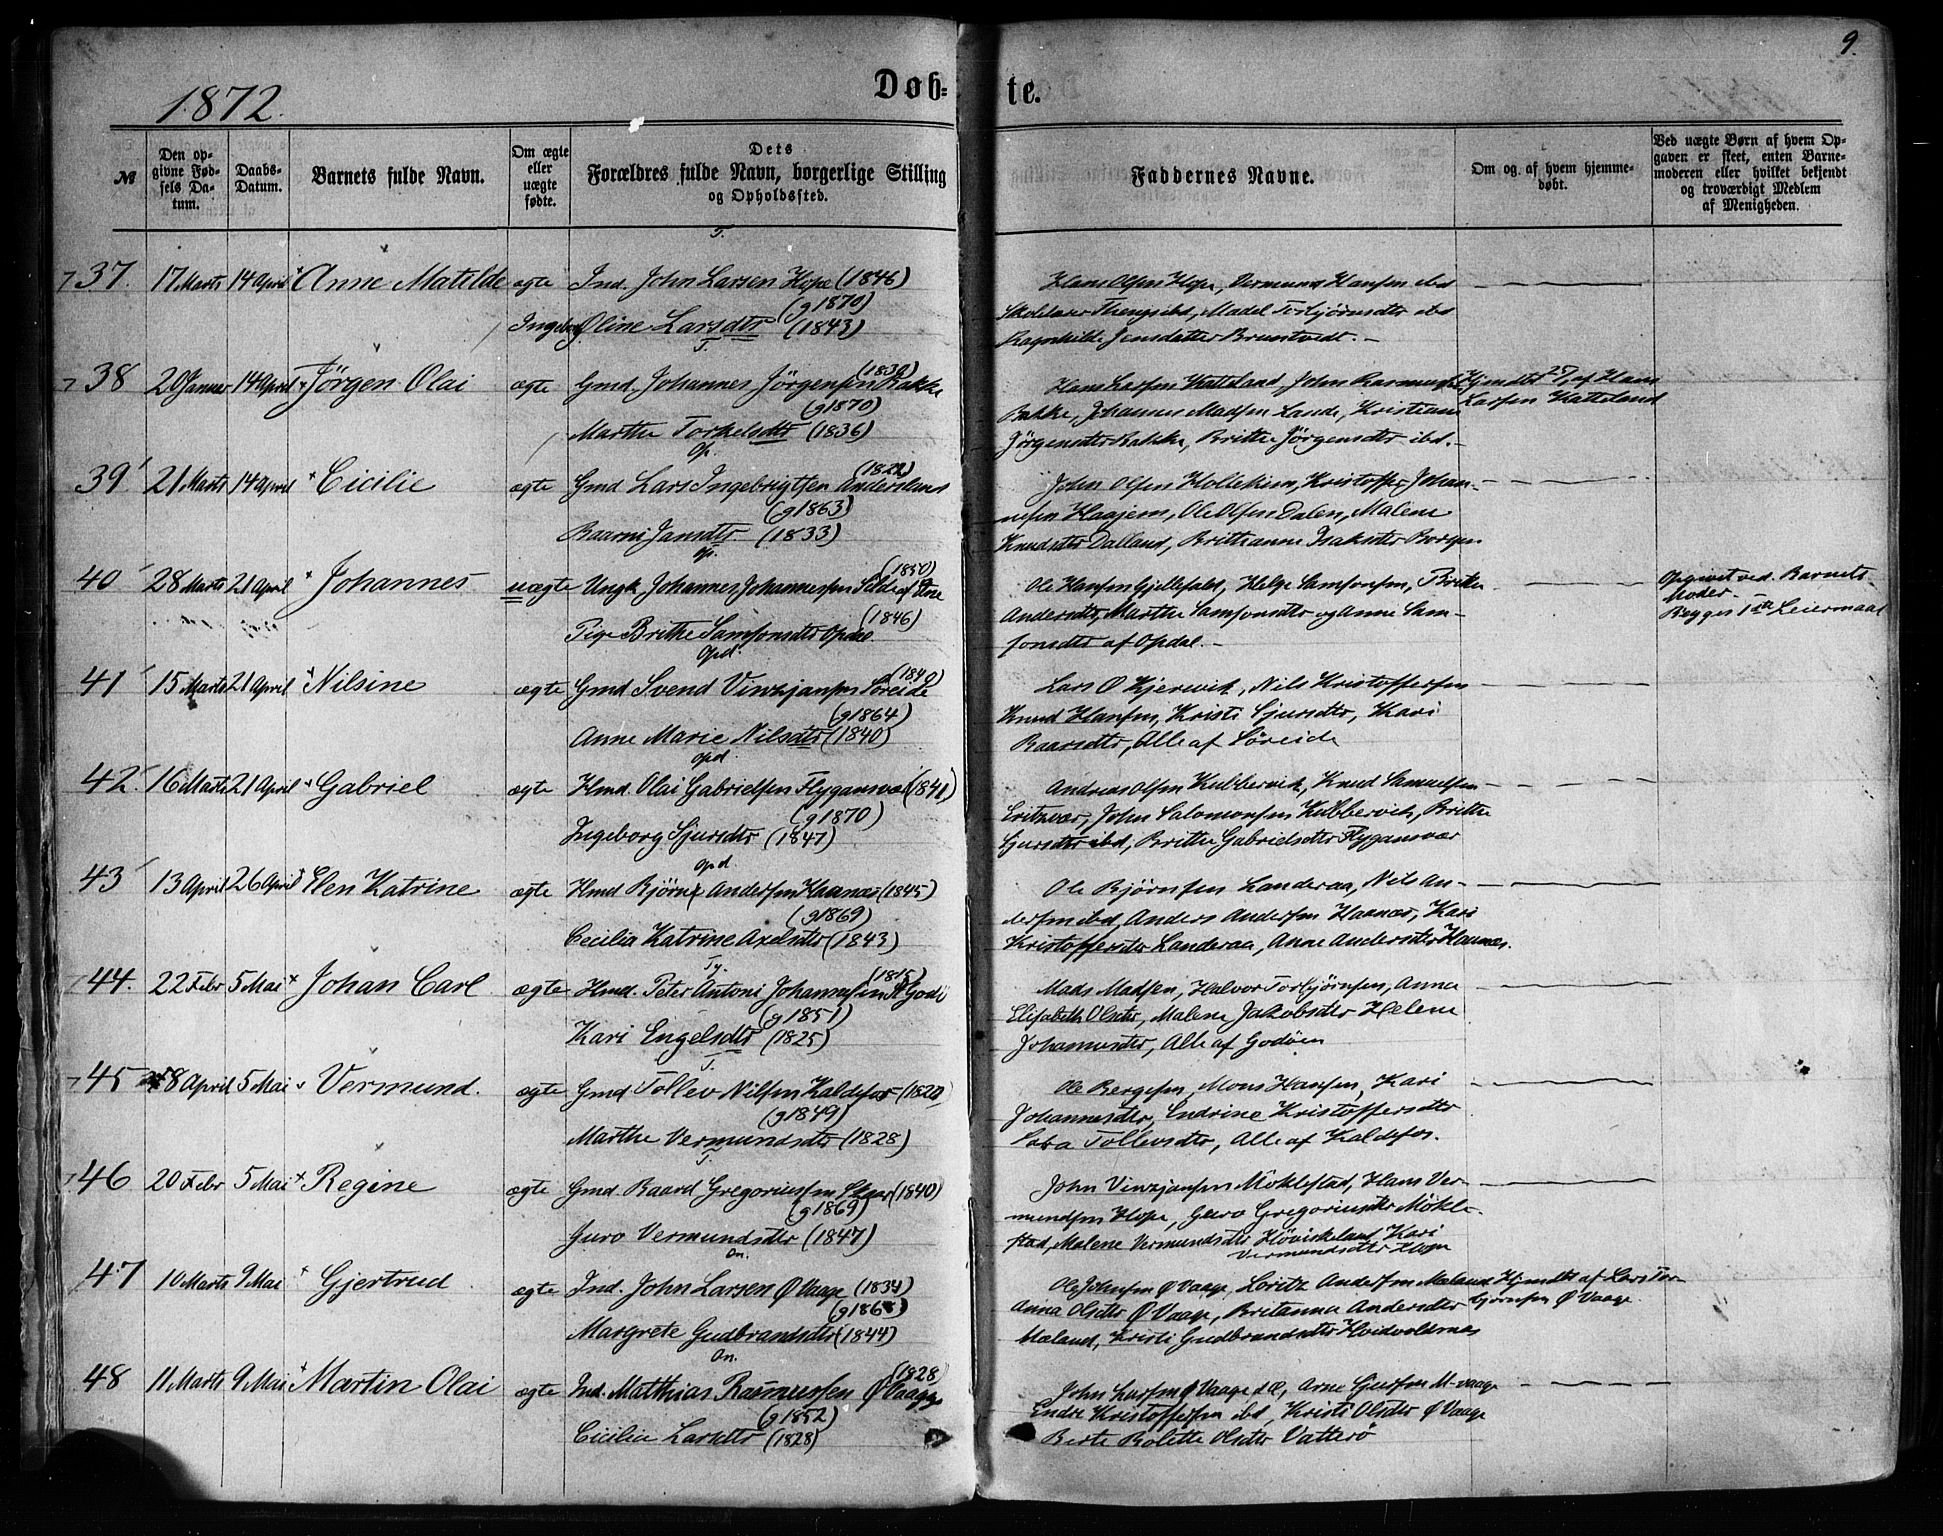 9.
1872.
Døb-
te.
№
Den op-
givne Fød-
sels Da-
tum.
Daabs-
Datum.
Barnets fulde Navn.
Om ægte
eller
uægte
fødte.
Dets
Forældres fulde Navn, borgerlige Stilling
og Opholdssted.
Faddernes Navne.
Om og af hvem hjemme-
døbt.
Ved uægte Børn af hvem Op-
gaven er skeet, enten Barne-
moderen eller hvilket bekjendt
og troværdigt Medlem
af Menigheden.
T.
37. 17 Marts 14 April Anne Matilde ægte Ind. John Larsen Hope (1846)
(g 1870)
Ingeborg Oline Larsdtr (1843)
Hans Olsen Hope, Vermund Hansen ibd
ibd, Madel Torbjørnsdtr ibd
Ragnhilde Jensdatter Bruntvedt. -
T.
38 20 Januar 14 April Jörgen Olai ægte Gmd. Johannes Jörgensen Bakke
(1839)
(g 1870)
Marthe Torkelsdtr (1836)
Hans Larsen Katteland, John Rasmus
Bakke, Johannes Madsen Lande, Kristiane
Jörgensdtr Bakke, Brithe Jörgensdtr ibd. -
Hjmdbt af Hans
Larsen Katteland
Op.
39 21 Marts 14 April Cicilie ægte Gmd Lars Ingebrigtsen Anderland
(1822)
(g 1863)
Baarni Jansdtr (1833)
John Olsen Hollekim, Kristoffer Johan-
nesen Haajem, Ole Olsen Dalen, Malene
Knudsdtr Dalland, Brithanne Isaksdtr Borgen
Op.
40 28 Marts 21 April Johannes uægte Ungk. Johannes Johannessen Silde af Etne
(1850)
(1846)
Pige Brithe Samsonsdtr Opdal.
Ole Hansen Gjellefald, Helge Samsonsen, Brithe
Andersdtr, Marthe Samsonsdtr og Anne Sam-
sonsdtr af Opdal. -
Opgivet ved Barnets
Moder.
Begges 1ste Leiermaal
Opd.
41 15 Marts 21 April Nilsine ægte Gmd Svend Vinzjansen Søreide
(1840)
(g 1864)
Anne Marie Nilsdtr (1840)
Lars O Kjerevik, Nils Kristoffersen
Knud Hansen, Kristi Sjursdtr, Kari
Baarsdtr, Alle af Søreide
Opd.
42 16 Marts 21 April Gabriel ægte Hmd. Olai Gabrielsen Flygansvær (1841)
(g 1870)
Ingeborg Sjursdtr (1847)
Andreas Olsen Kubbervik, Knud Samuelsen
Eritzvær, John Salomonsen Kubbervik, Brithe
Sjursdtr ibd, Brithe Gabrielsdtr Flygansvær
Opd.
43 13 April 26 April Elen Katrine ægte Hmd Bjørn Andersen Haanæs (1845)
(g 1869)
Cecilia Katrine Axelsdtr (1843)
Ole Bjørnsen Landeraa, Nils An-
dersen ibd, Anders Andersen Haanæs, Kari
Kristoffersdtr Landeraa, Anne Andersdtr Haanæs.
Ty.
44. 22 Febr 5 Mai Johan Carl ægte Hmd. Peter Antoni Johannesen Godø
(1815)
(g 1851)
Kari Engelsdtr (1825)
Mads Madsen, Halvor Torbjørnsen, Anna
Elisabeth Olsdtr, Malene Jakobsdtr Helene
Johannesdtr, Alle af Godøen
T.
45 8 April 5 Mai Vermund. ægte Gmd Tollev Nilsen Kaldefos (1820)
(g 1849)
Marthe Vermundsdtr (1828)
Ole Bergesen, Mons Hansen, Kari
Johannesdtr, Endrine Kristoffersdtr
Tollevsdtr, Alle af Kaldefos.
T.
46 20 Febr 5 Mai Regine ægte Gmd Baard Gregoriussen Skaar (1840)
(g 1869)
Guro Vermundsdtr (1847)
John Vinzjansen Møklestad, Hans Ver-
mundsen Hope, Guro Gregoriusdtr Møkle-
stad, Malene Vermundsdtr Høviskeland Kari
Vermundsdtr Hope
On.
47 10 Marts 9 Mai Gjertrud ægte Ind. John Larsen Ø Vaage (1834)
(g 1868)
Margrete Gudbrandsdtr (1844)
Ole Johnsen Ø Vaage, Loritz Andersen Maland
Anna Olsdtr Ø Vaage, Britanna Andersdtr
Maland, Kristi Gudbrandsdtr Hvidvoldnæs
Hjmdbt af Lars Tor-
bjørnsen Ø Vaage.
On.
48 11 Marts 9 Mai Martin Olai ægte Ind. Matthias Rasmussen Ø Vaage
(1828
(g 1852)
Cicilia Larsdtr (1828)
John Larsen Ø Vaage d.Æ, Arne Sjursen M-vaage
Endre Kristoffersen ibd, Kristi Olsdtr Ø Vaage
Berte Bolette Olsdtr Vatterø